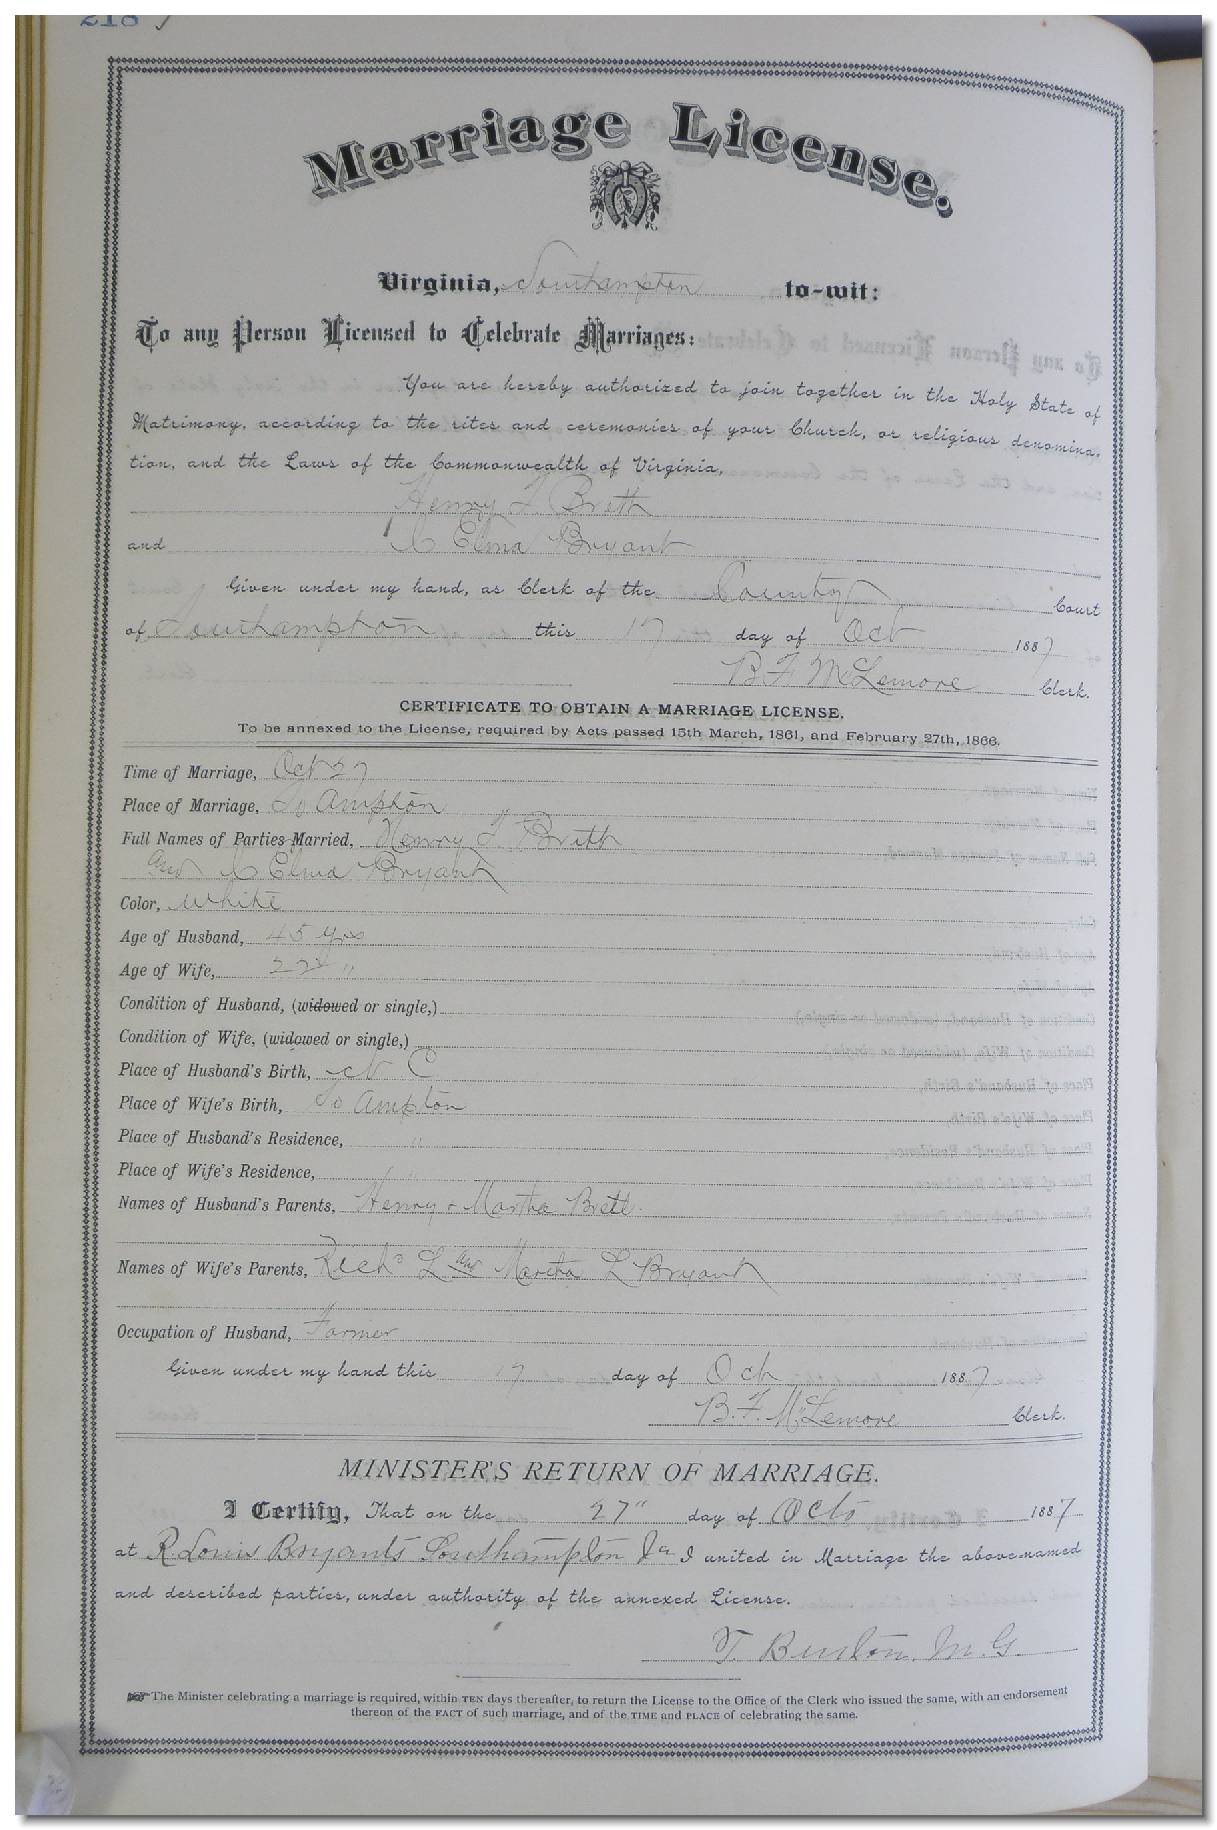 218
Marriage License.
Virginia, Southampton to-wit:
To any Person Licensed to Celebrate Marriages:
You are hereby authorized to join together in the Holy State of
Matrimony, according to the rites and ceremonies of your Church, or religious denomina-
tion, and the Laws of the Commonwealth of Virginia,
Henry T. Brett
and Elma Bryant
Given under my hand, as Clerk of the County Court
of Southampton this 17 day of Oct 1887
B F McLemore Clerk.
CERTIFICATE TO OBTAIN A MARRIAGE LICENSE.
To be annexed to the License, required by Acts passed 15th March, 1861, and February 27th, 1866.
Time of Marriage, Oct 27
Place of Marriage, So Ampton
Full Names of Parties Married, Henry T. Brett
and Elma Bryant
Color, White
Age of Husband, 45 yrs
Age of Wife, 22 "
Condition of Husband, (widowed or single,)
Condition of Wife, (widowed or single,)
Place of Husband's Birth, C
Place of Wife's Birth, So Ampton
Place of Husband's Residence, "
Place of Wife's Residence,
Names of Husband's Parents, Henry & Martha Brett.
Names of Wife's Parents, Richd L and Martha L Bryant
Occupation of Husband, Farmer
Given under my hand this 17 day of Oct 1887
B. F. McLemore Clerk.
MINISTER'S RETURN OF MARRIAGE.
I Certify, That on the 27" day of Octo 1887
at R Louis Bryants Southampton Va I united in Marriage the above-named
and described parties, under authority of the annexed License.
M. G.
The Minister celebrating a marriage is required, within TEN days thereafter, to return the License to the Office of the Clerk who issued the same, with an endorsement
thereon of the FACT of such marriage, and of the TIME and PLACE of celebrating the same.